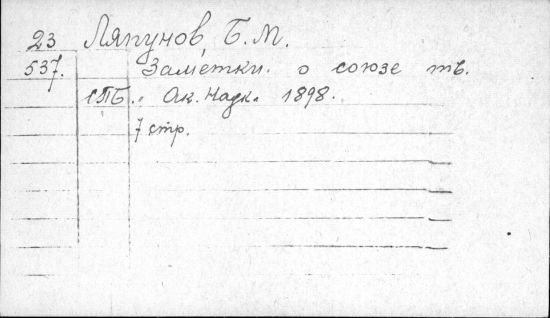 23 Ляпунов, Б. М.
537. Заметки о союзе ть.
СПБ. Ак. Наук. 1898.
7 стр.